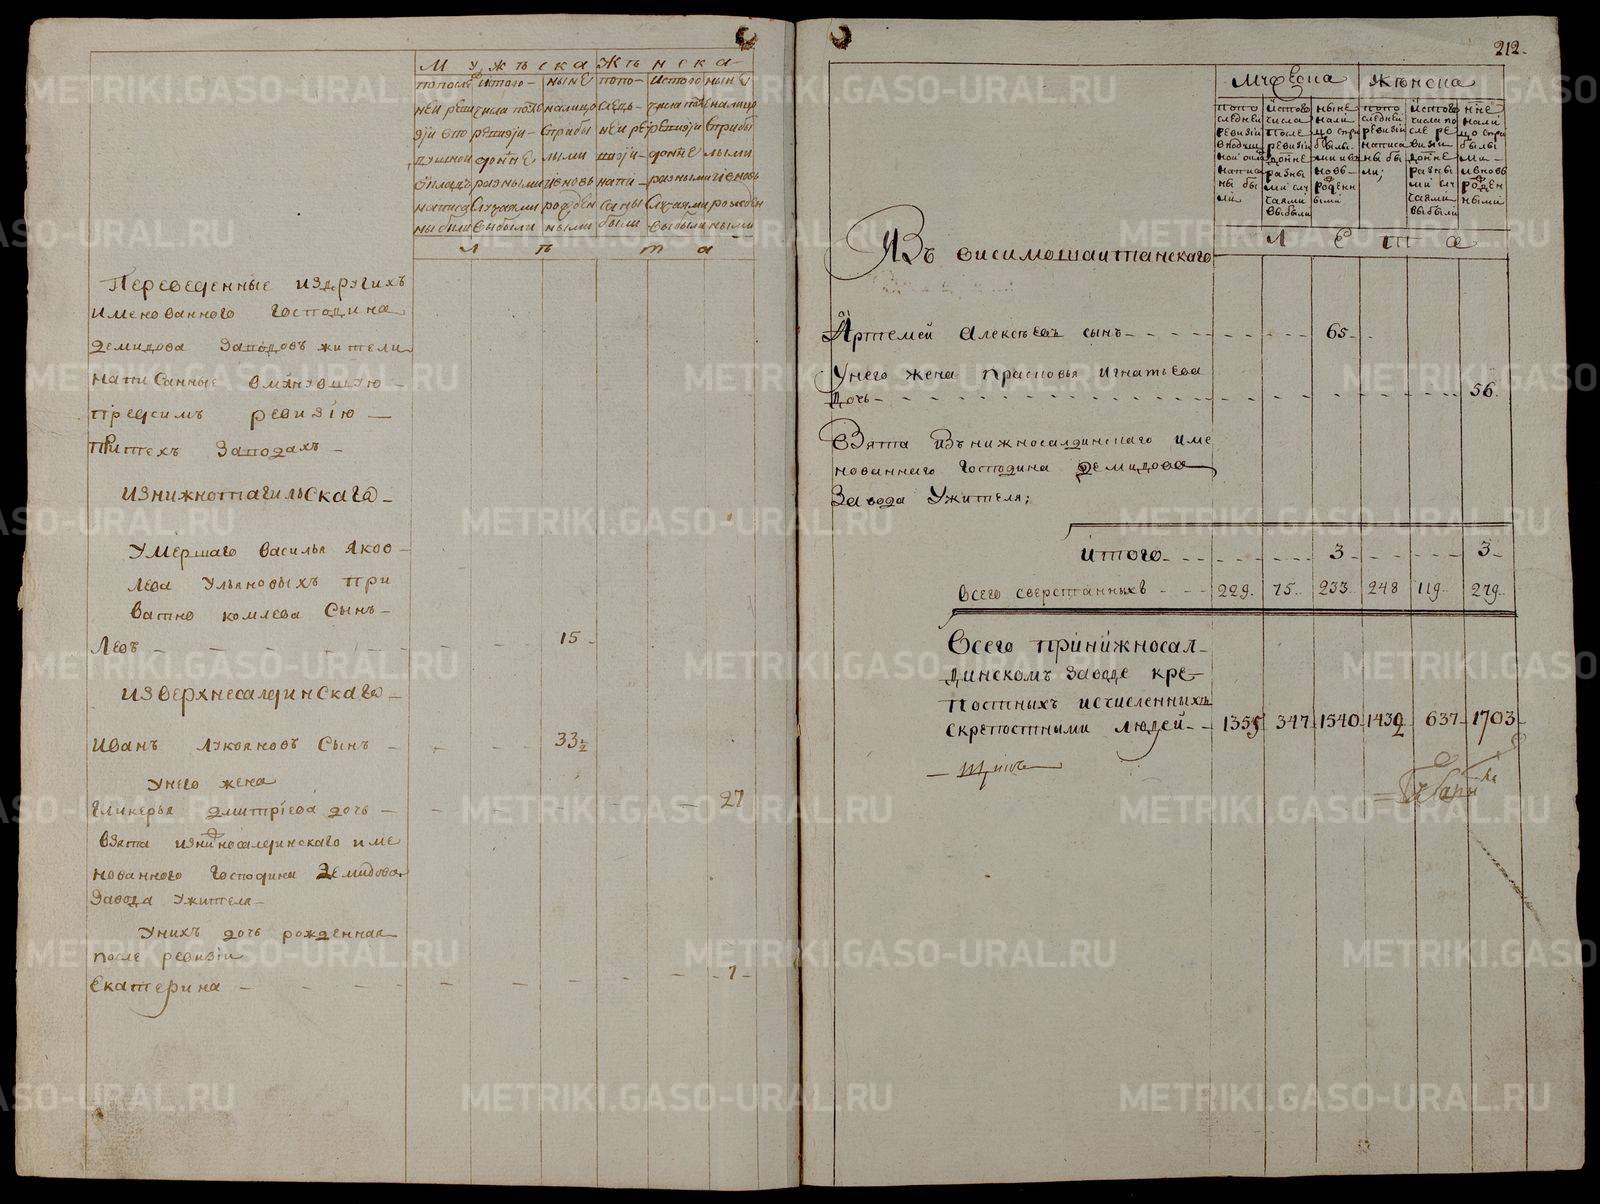 Мужеска Женска
по после
дней реви
зіи в по
душной
окладъ
написа
ны были
ис того
числа после
ревизіи
до н҃не
разными
случаями
выбыли
ныне
на лицо
с прибы
лыми
и вновь
рожден
ными
по по
следъ
ней ре
визіи
напи
саны
были
ис того
числа после
ревизіи
до н҃не
разными
случаями
выбыли
ныне
на лицо
с прибы
лыми
и вновь
рожден
ными
Л ѣ т а
Переведенные из других
имянованного господина
демидова заводовъ жители
написанные в минувшую
пред симъ ревизію
при тех заводахъ
из нижнотагильскаго
Умершаго василья яков
лева Ульяновыхъ при
ватно комлева сынъ
Левъ 15
из верхнесалдинскаго
Иванъ Лукояновъ сынъ 33½
У него жена
гликерья дмитріева дочь 27
взята из нижносалдинскаго име
нованного господина демидова
завода у жителя
У них дочь рожденная
после ревизіи
Екатерина 1
212
Мужеска Женска
по по
следней
ревизіи
в подуш
ной окла
написа
ны бы
ли
ис того
числа
после
ревизіи
до н҃не
разны
ми слу
чаями
выбыли
ныне
нали
цо с при
былы
ми и в
новь
рожден
ными
по по
следней
ревизіи
написа
ны бы
ли;
ис того
числа по
сле ре
визіи
до н҃не
разны
ми слу
чаями
выбыли
н҃не
нали
цо с при
былы
ми
и вновь
рожден
ными
Л е т а
Изъ висимошаитанскаго
Артемей Алексѣевъ сынъ 65
У него жена прасковья игнатьева
дочь 56
Взята изъ нижносалдинскаго име
нованнаго господина демидова
завода у жителя;
итого 3 3
всего с верстанныхъ 229 75 233 248 119 279
Всего при нижносал
динскомъ заводе кре
постныхъ исчисленныхъ
с крепостными людей 1355 347 1540 1432 637 1703